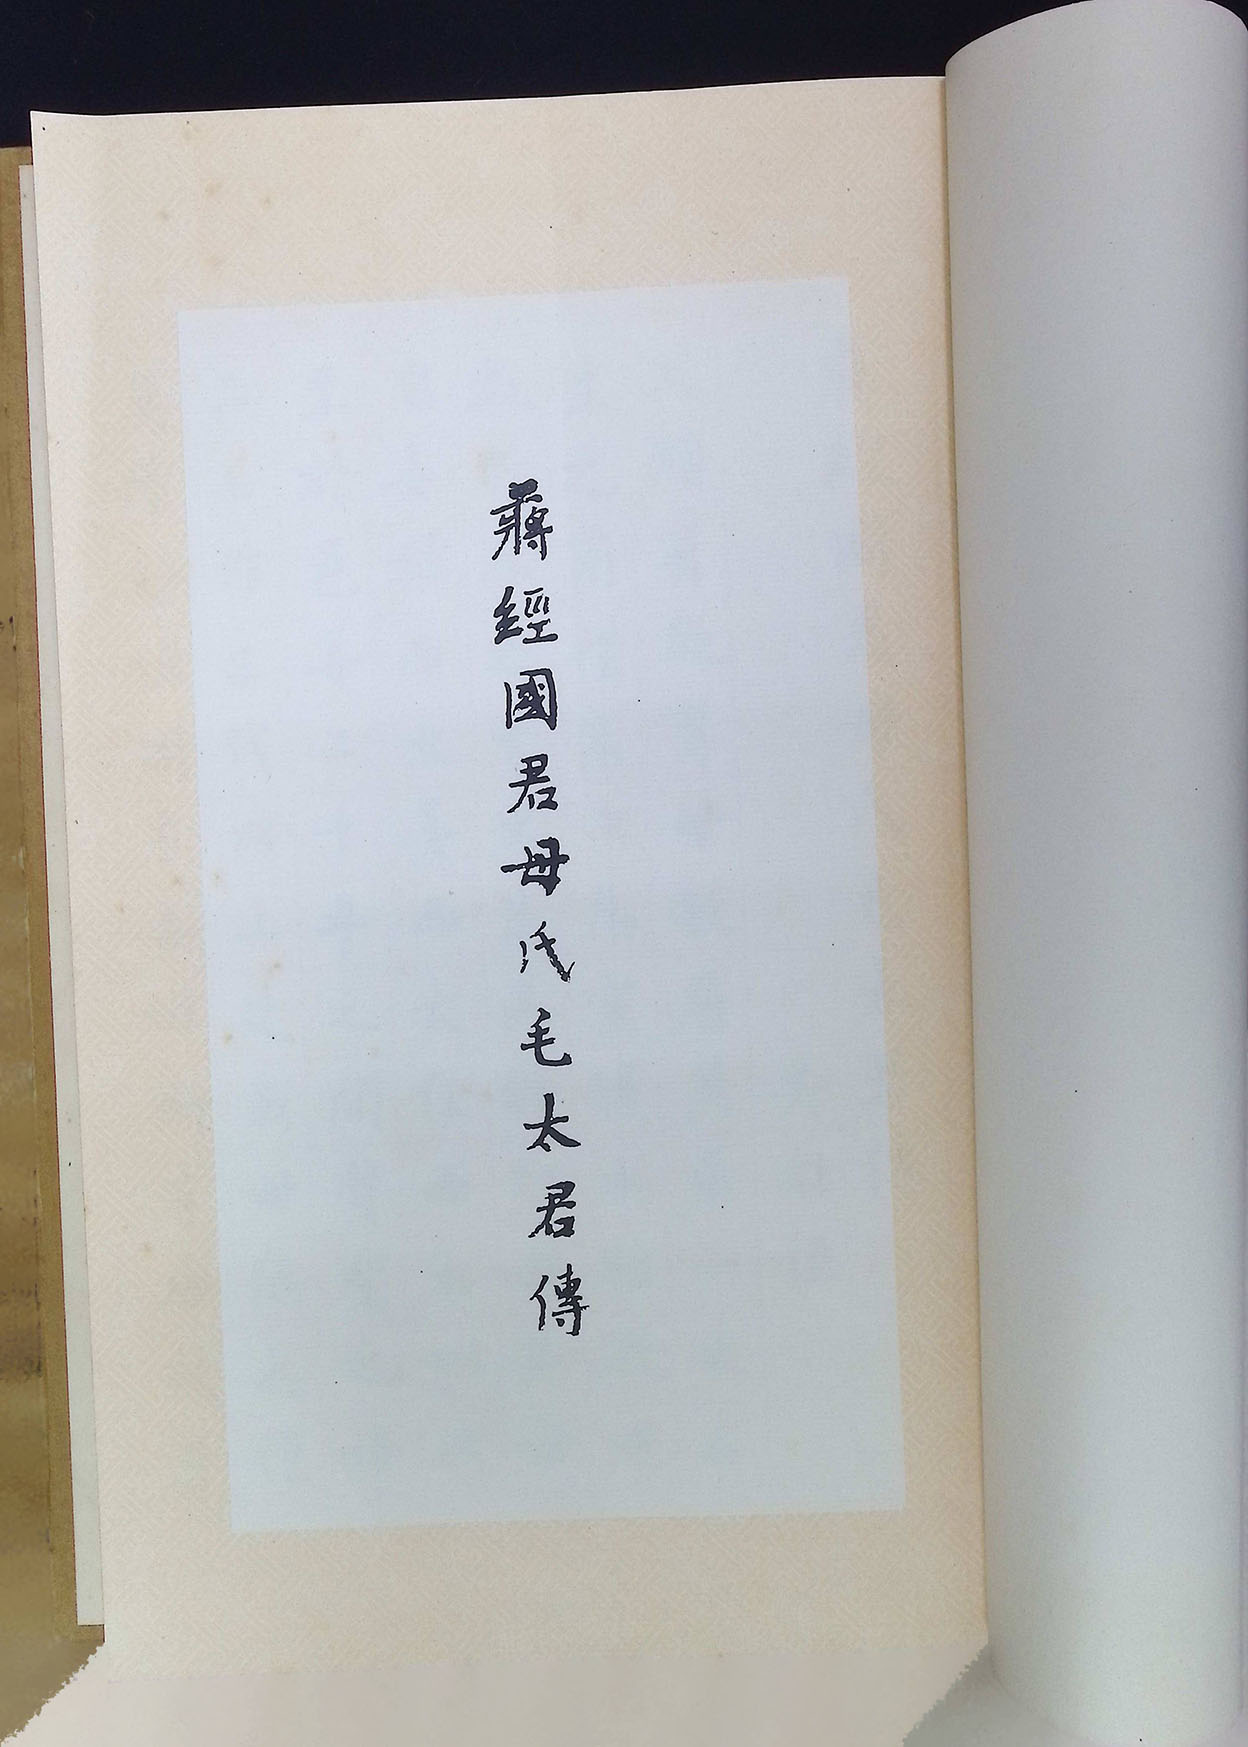 蔣經國君母氏毛太君傳